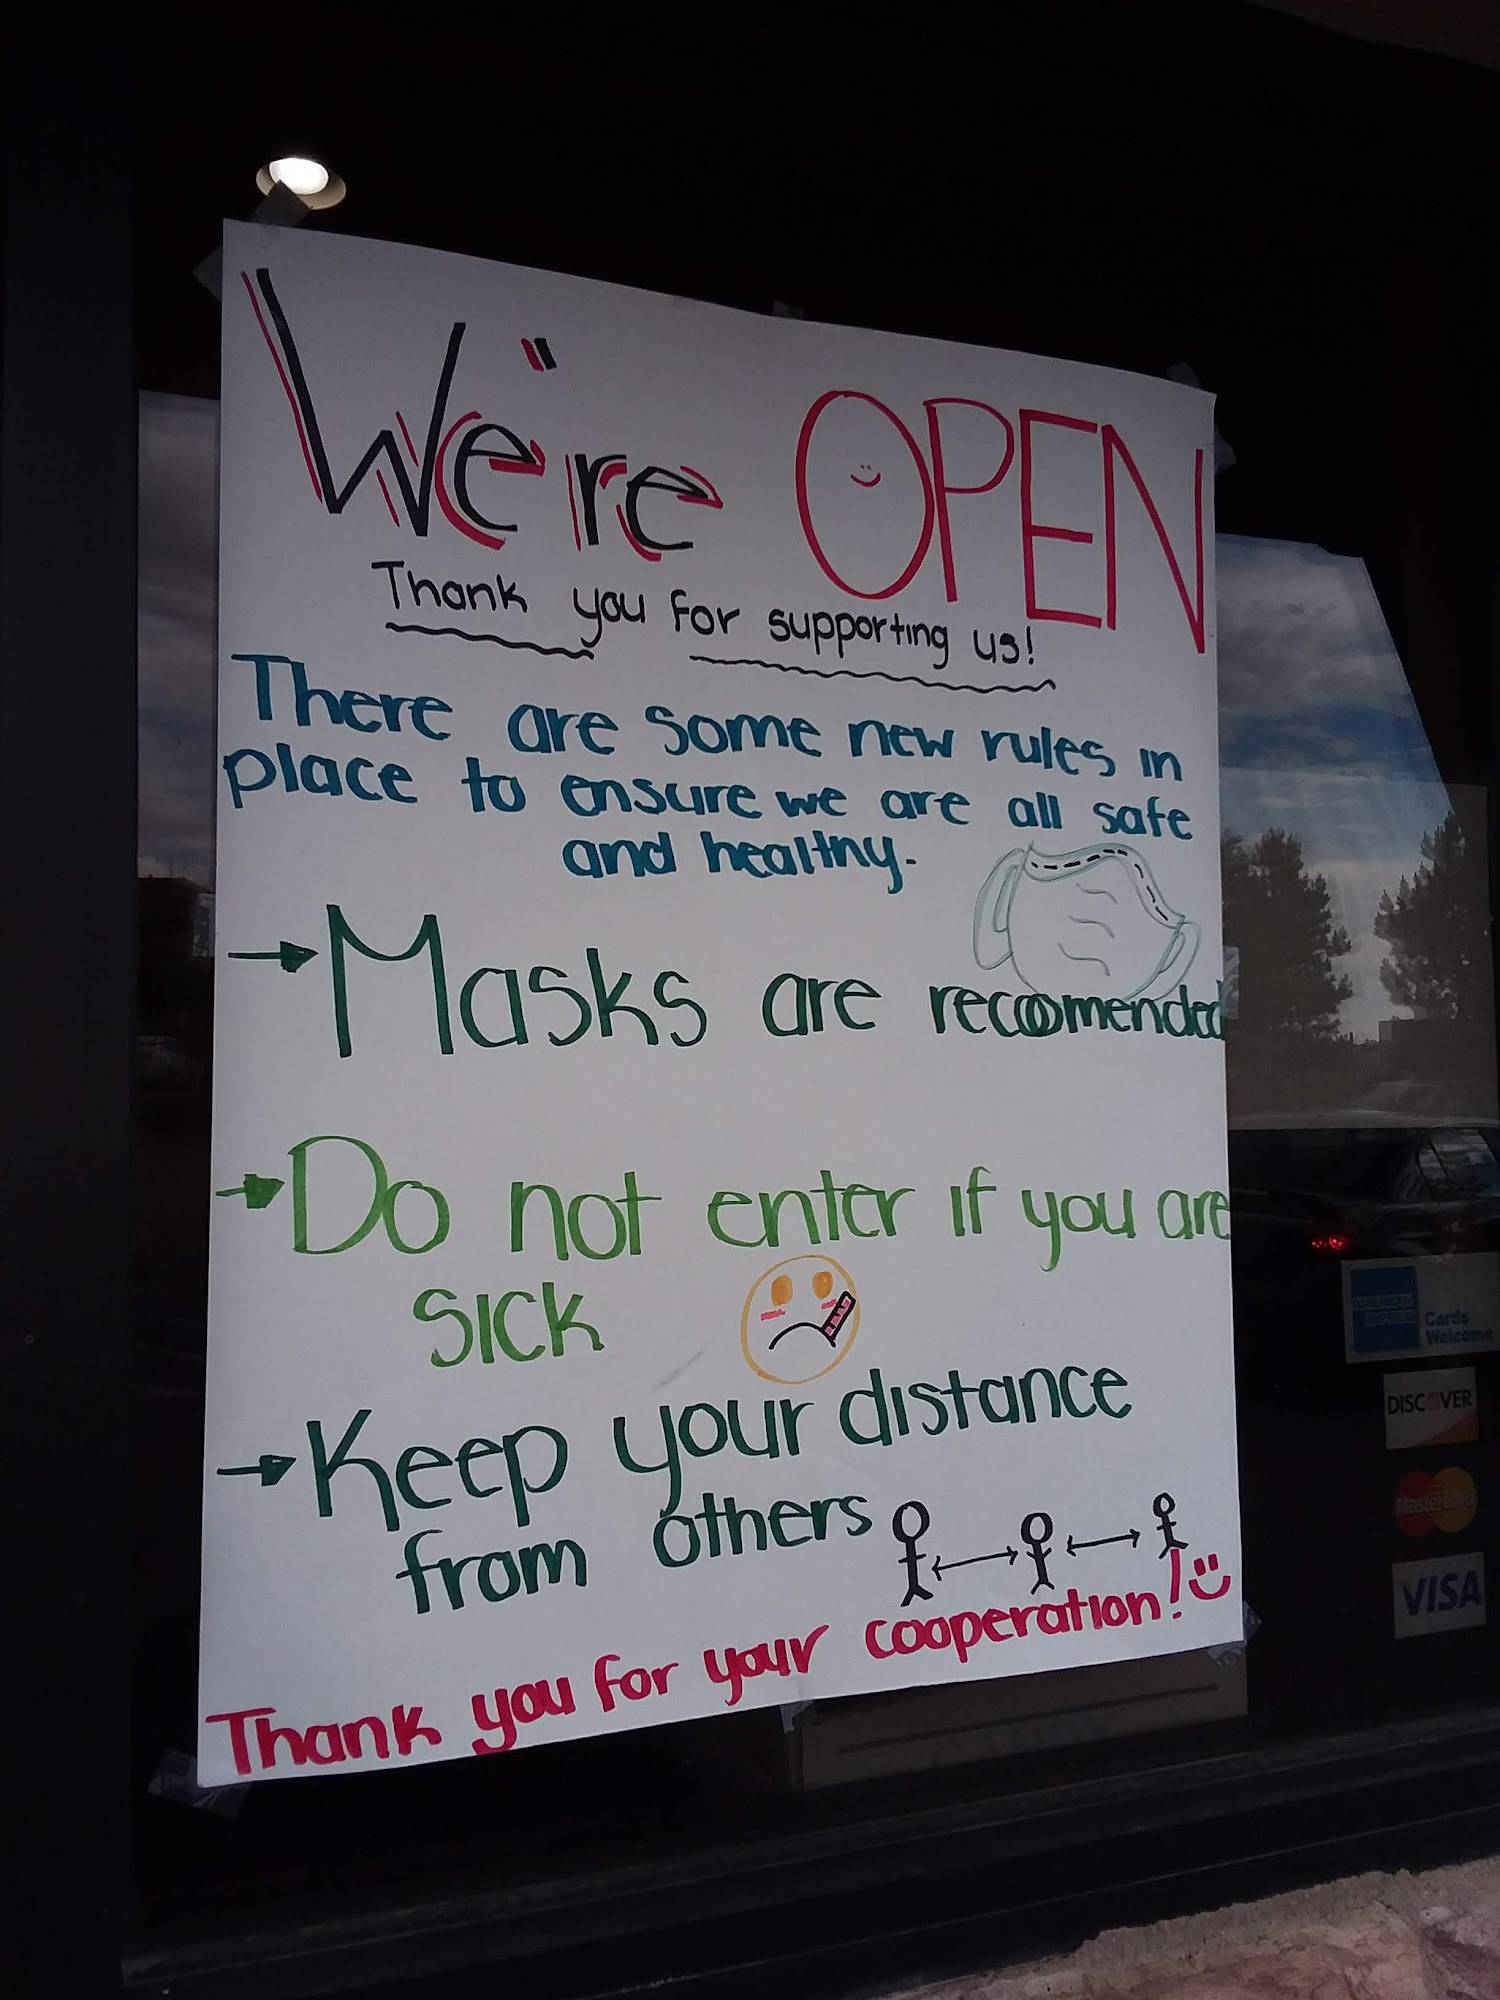 We're OPEN
Thank you for supporting us!
There are some new rules in
place to ensure we are all safe
and healthy.
→ Masks are recoomended
→ Do not enter if you are
sick
→ Keep your distance
from others
Thank you for your cooperation!
AMERICAN
EXPRESS
Cards
Welcome
DISCOVER
Mastercard
VISA